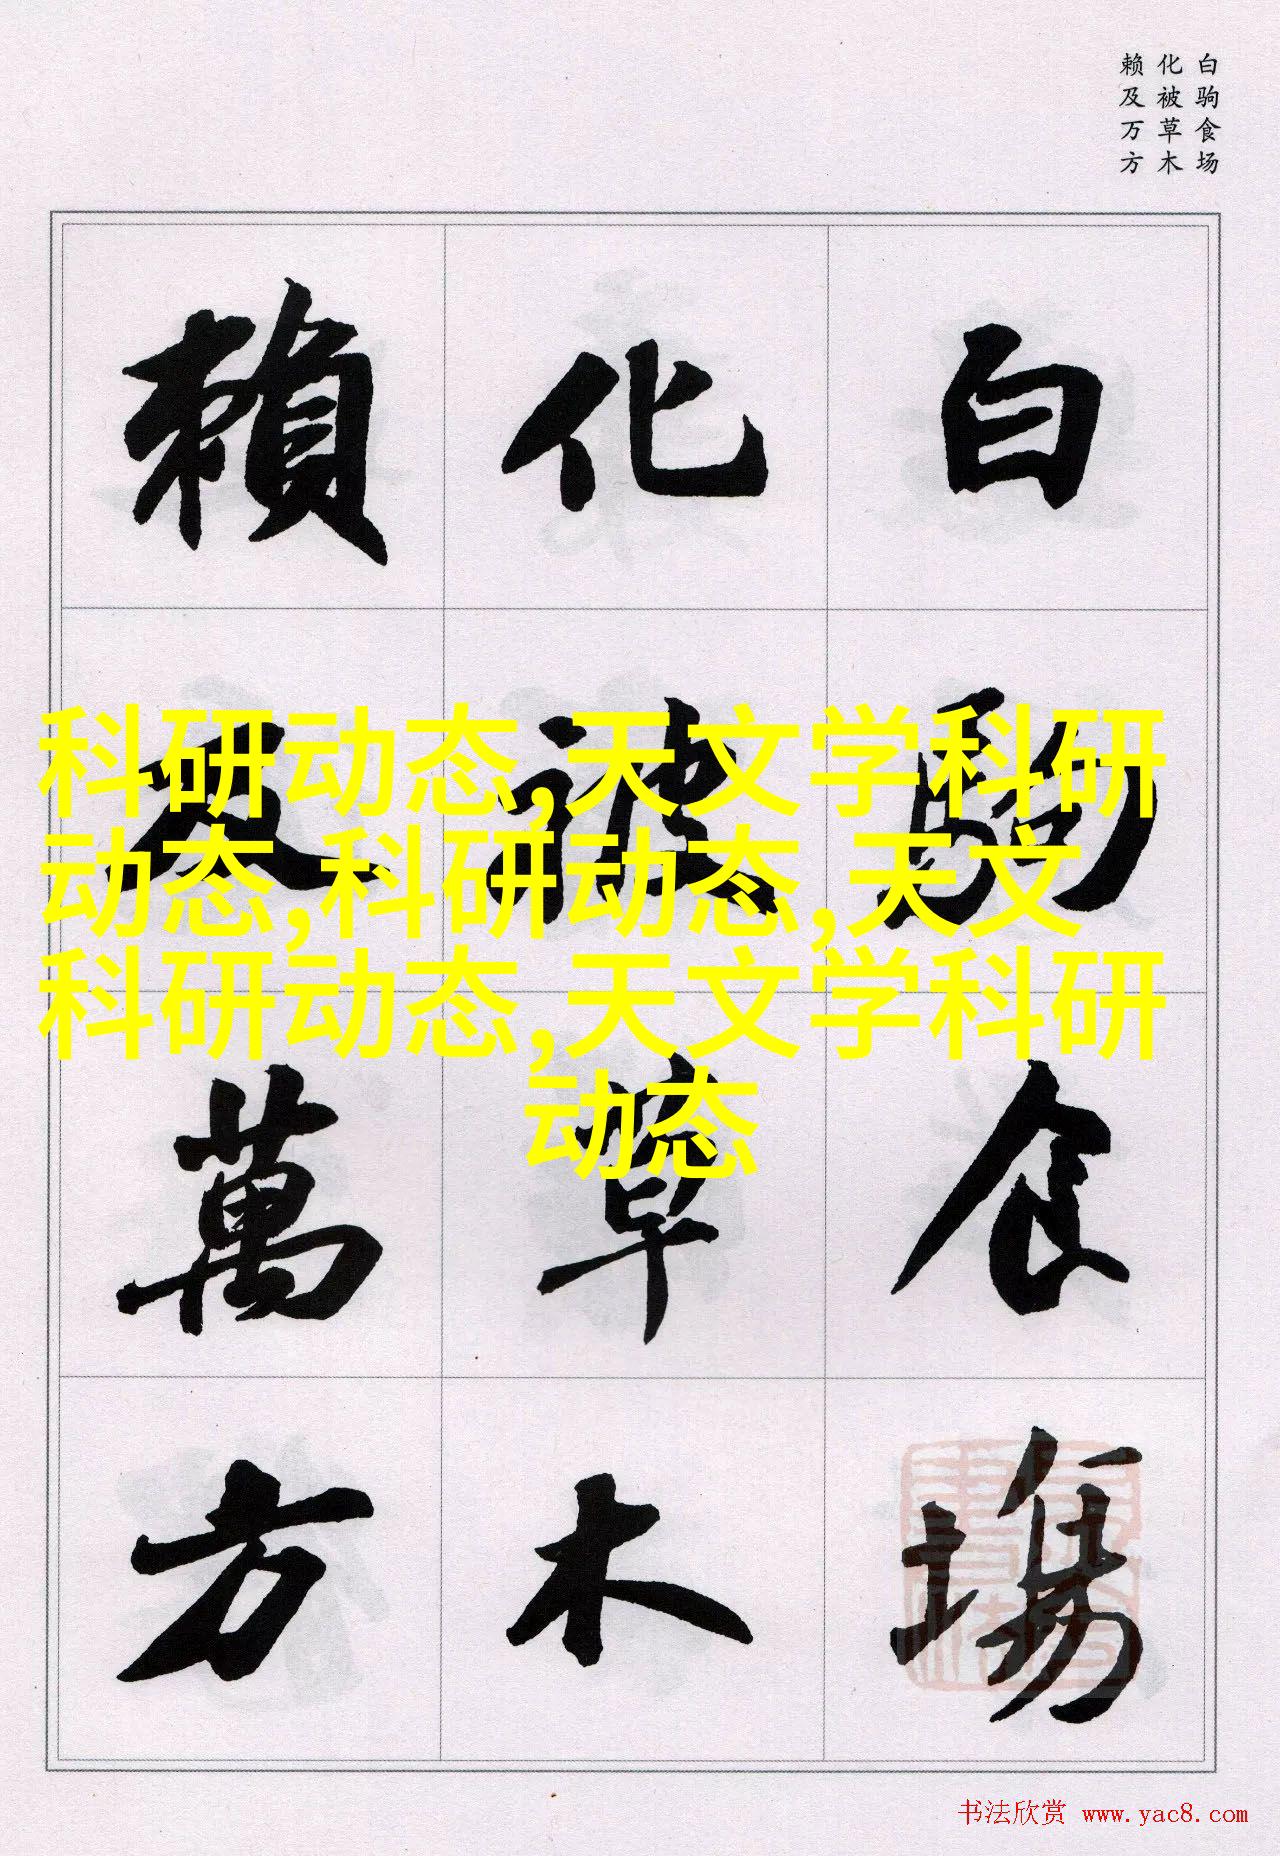 白驹食场
化被草木
赖及万方
白駒食場
化被草木
賴及萬方
科研动态,天文学科研
动态,科研动态,天文
科研动态,天文学科研
动态
书法欣赏 www.yac8.com